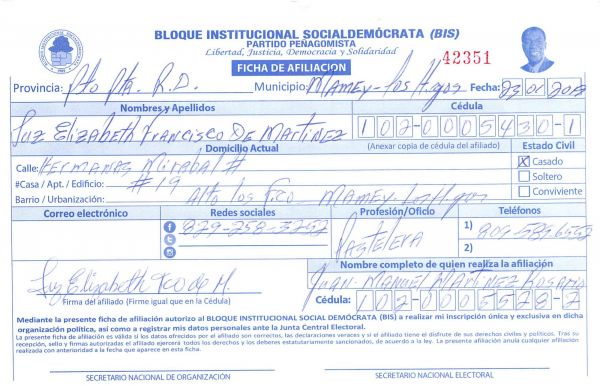 BLOQUE INSTITUCIONAL SOCIALDEMÓCRATA (BIS)
PARTIDO PEÑAGOMISTA
Libertad, Justicia, Democracia y Solidaridad
42351
FICHA DE AFILIACIÓN
Provincia: Pto Pta. R.D. Municipio: Mamey-Los Hgos Fecha: 23 01
Nombres y Apellidos Cédula
Luz Elizabeth Francisco De Martinez 102-0005430-1
Domicilio Actual (Anexar copia de cédula del afiliado) Estado Civil
Calle: Hermanas Mirabal # X Casado
#Casa / Apt. / Edificio: #19 Soltero
Barrio / Urbanización: Alto los Fco Mamey Conviviente
Correo electrónico Redes sociales Profesión/Oficio Teléfonos
829-258-3252 Pastelera 1) 809-589-6552
2)
Luz Elizabeth Fco de M. Nombre completo de quien realiza la afiliación
Juan Manuel Martinez Rosario
Firma del afiliado (Firme igual que en la Cédula) Cédula: 102-0005578-7
Mediante la presente ficha de afiliación autorizo al BLOQUE INSTITUCIONAL SOCIAL DEMÓCRATA (BIS) a realizar mi inscripción única y exclusiva en dicha
organización política, así como a registrar mis datos personales ante la Junta Central Electoral.
La presente ficha de afiliación es válida si los datos ofrecidos por el afiliado son correctos, las declaraciones veraces y si el afiliado tiene el disfrute de sus derechos civiles y políticos. Tras su
recepción, sello y firmas autorizadas el afiliado ejercerá todos los derechos y los deberes estatutariamente sancionados, de acuerdo a la ley. La presente afiliación anula cualquier afiliación
realizada con anterioridad a la fecha que aparece en esta ficha.
SECRETARIO NACIONAL DE ORGANIZACIÓN SECRETARIO NACIONAL ELECTORAL